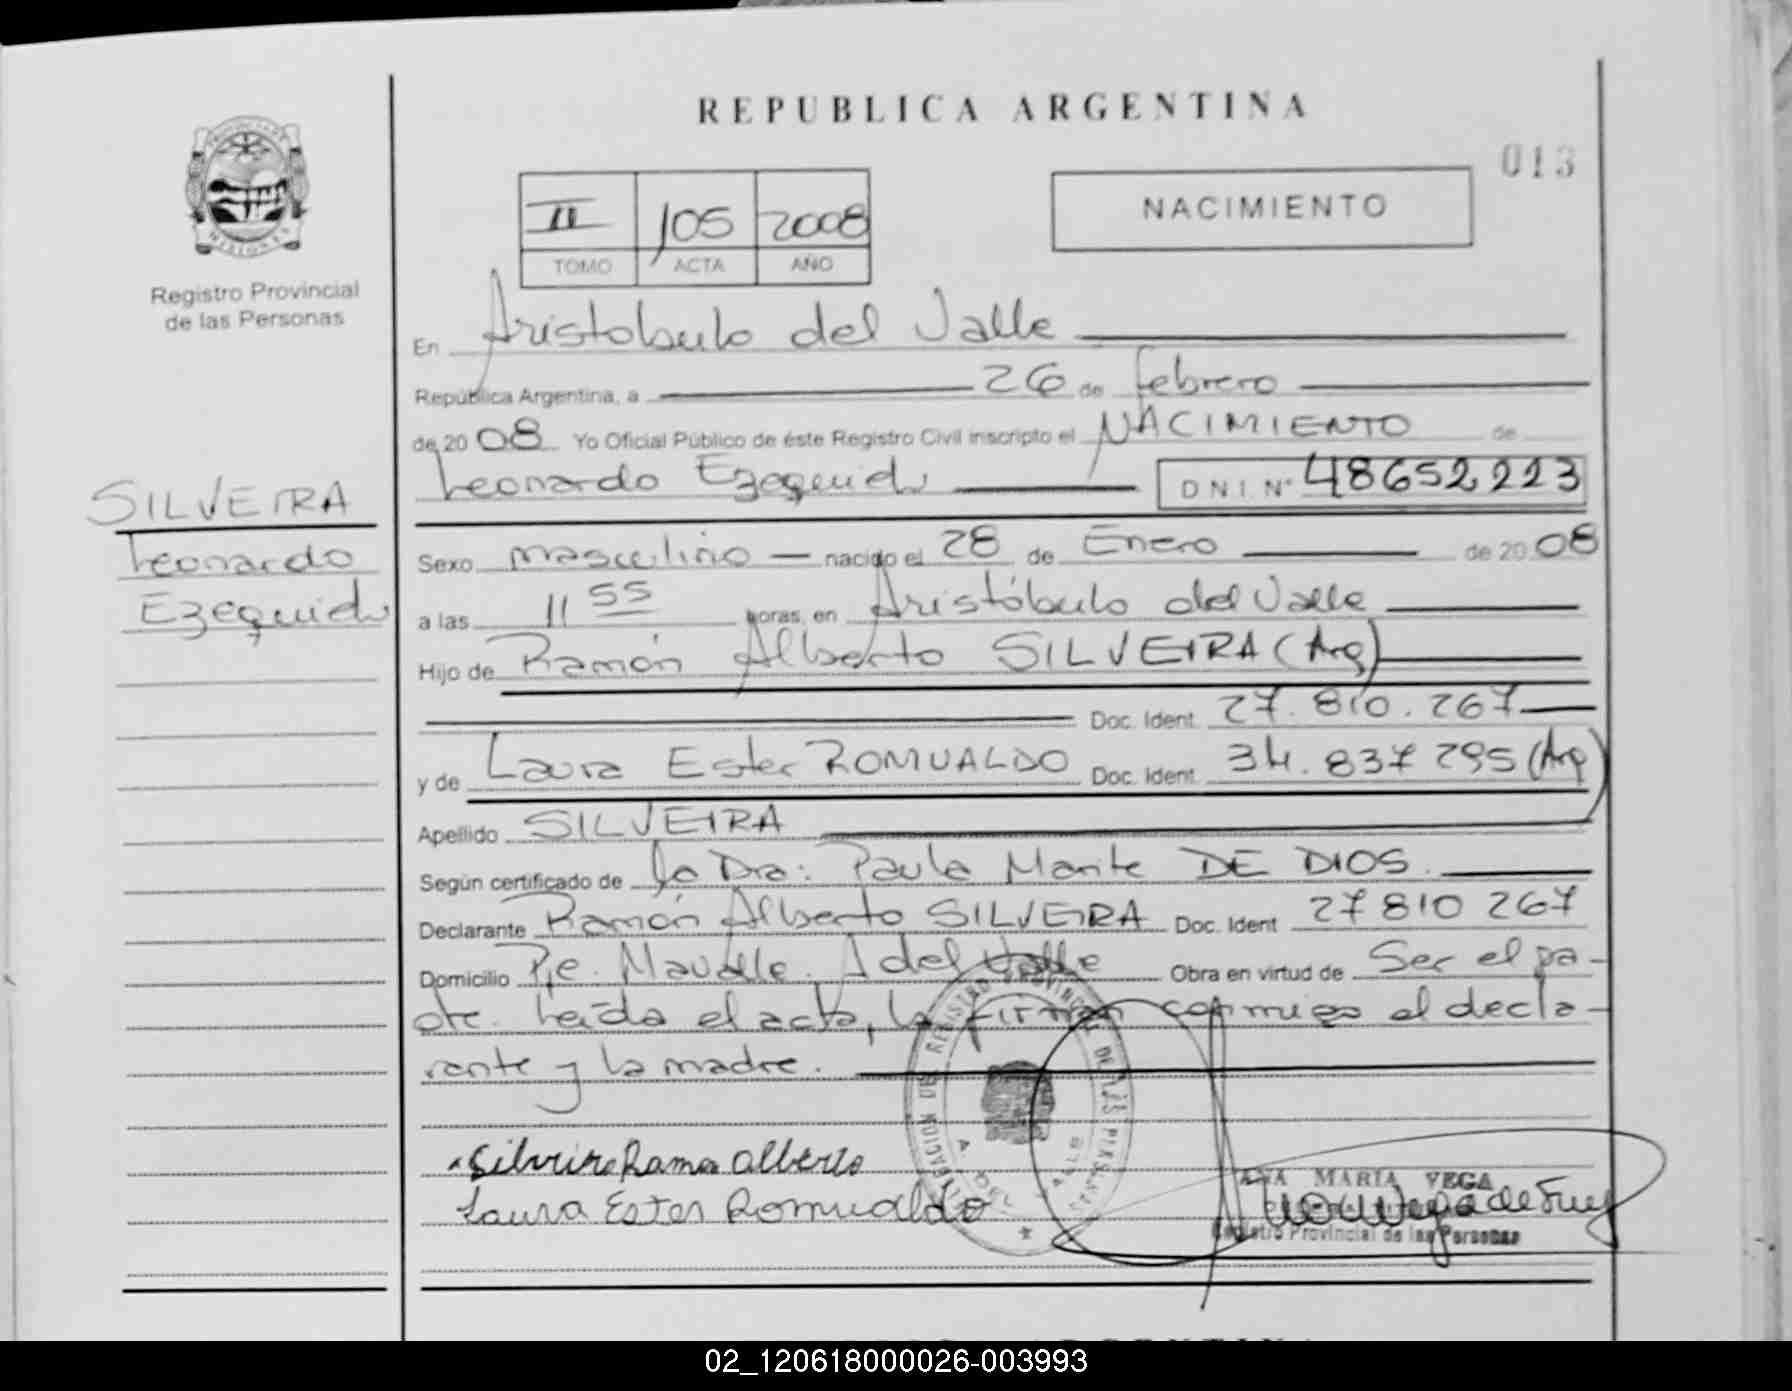 REPUBLICA ARGENTINA
013
II 105 2008
TOMO ACTA AÑO
NACIMIENTO
PROVINCIA DE
MISIONES
Registro Provincial
de las Personas
En Aristobulo del Valle
República Argentina, a 26 de febrero
de 20 08 Yo Oficial Público de éste Registro Civil inscripto el NACIMIENTO de
Leonardo Ezequiel D N I Nº 48652223
SILVEIRA
Leonardo
Ezequiel
Sexo masculino nacido el 28 de Enero de 20 08
a las 11 55 horas, en Aristóbulo del Valle
Hijo de Ramón Alberto SILVEIRA (Arg)
Doc. Ident. 27.810.267
y de Laura Ester ROMUALDO Doc. Ident. 34.837 295 (Arg)
Apellido SILVEIRA
Según certificado de la Dra: Paula DE DIOS.
Declarante Ramón Alberto SILVEIRA Doc. Ident 27 810 267
Domicilio A del Valle Obra en virtud de Ser el pa-
dre. Leída el acta, la firman conmigo el decla-
rante y la madre.
Ramon Alberto
Laura Ester Romualdo
DELEGACION DEL REGISTRO PROVINCIAL DE LAS PERSONAS
A. DEL VALLE
ANA MARIA VEGA
Registro Provincial de las Personas
02_120618000026-003993